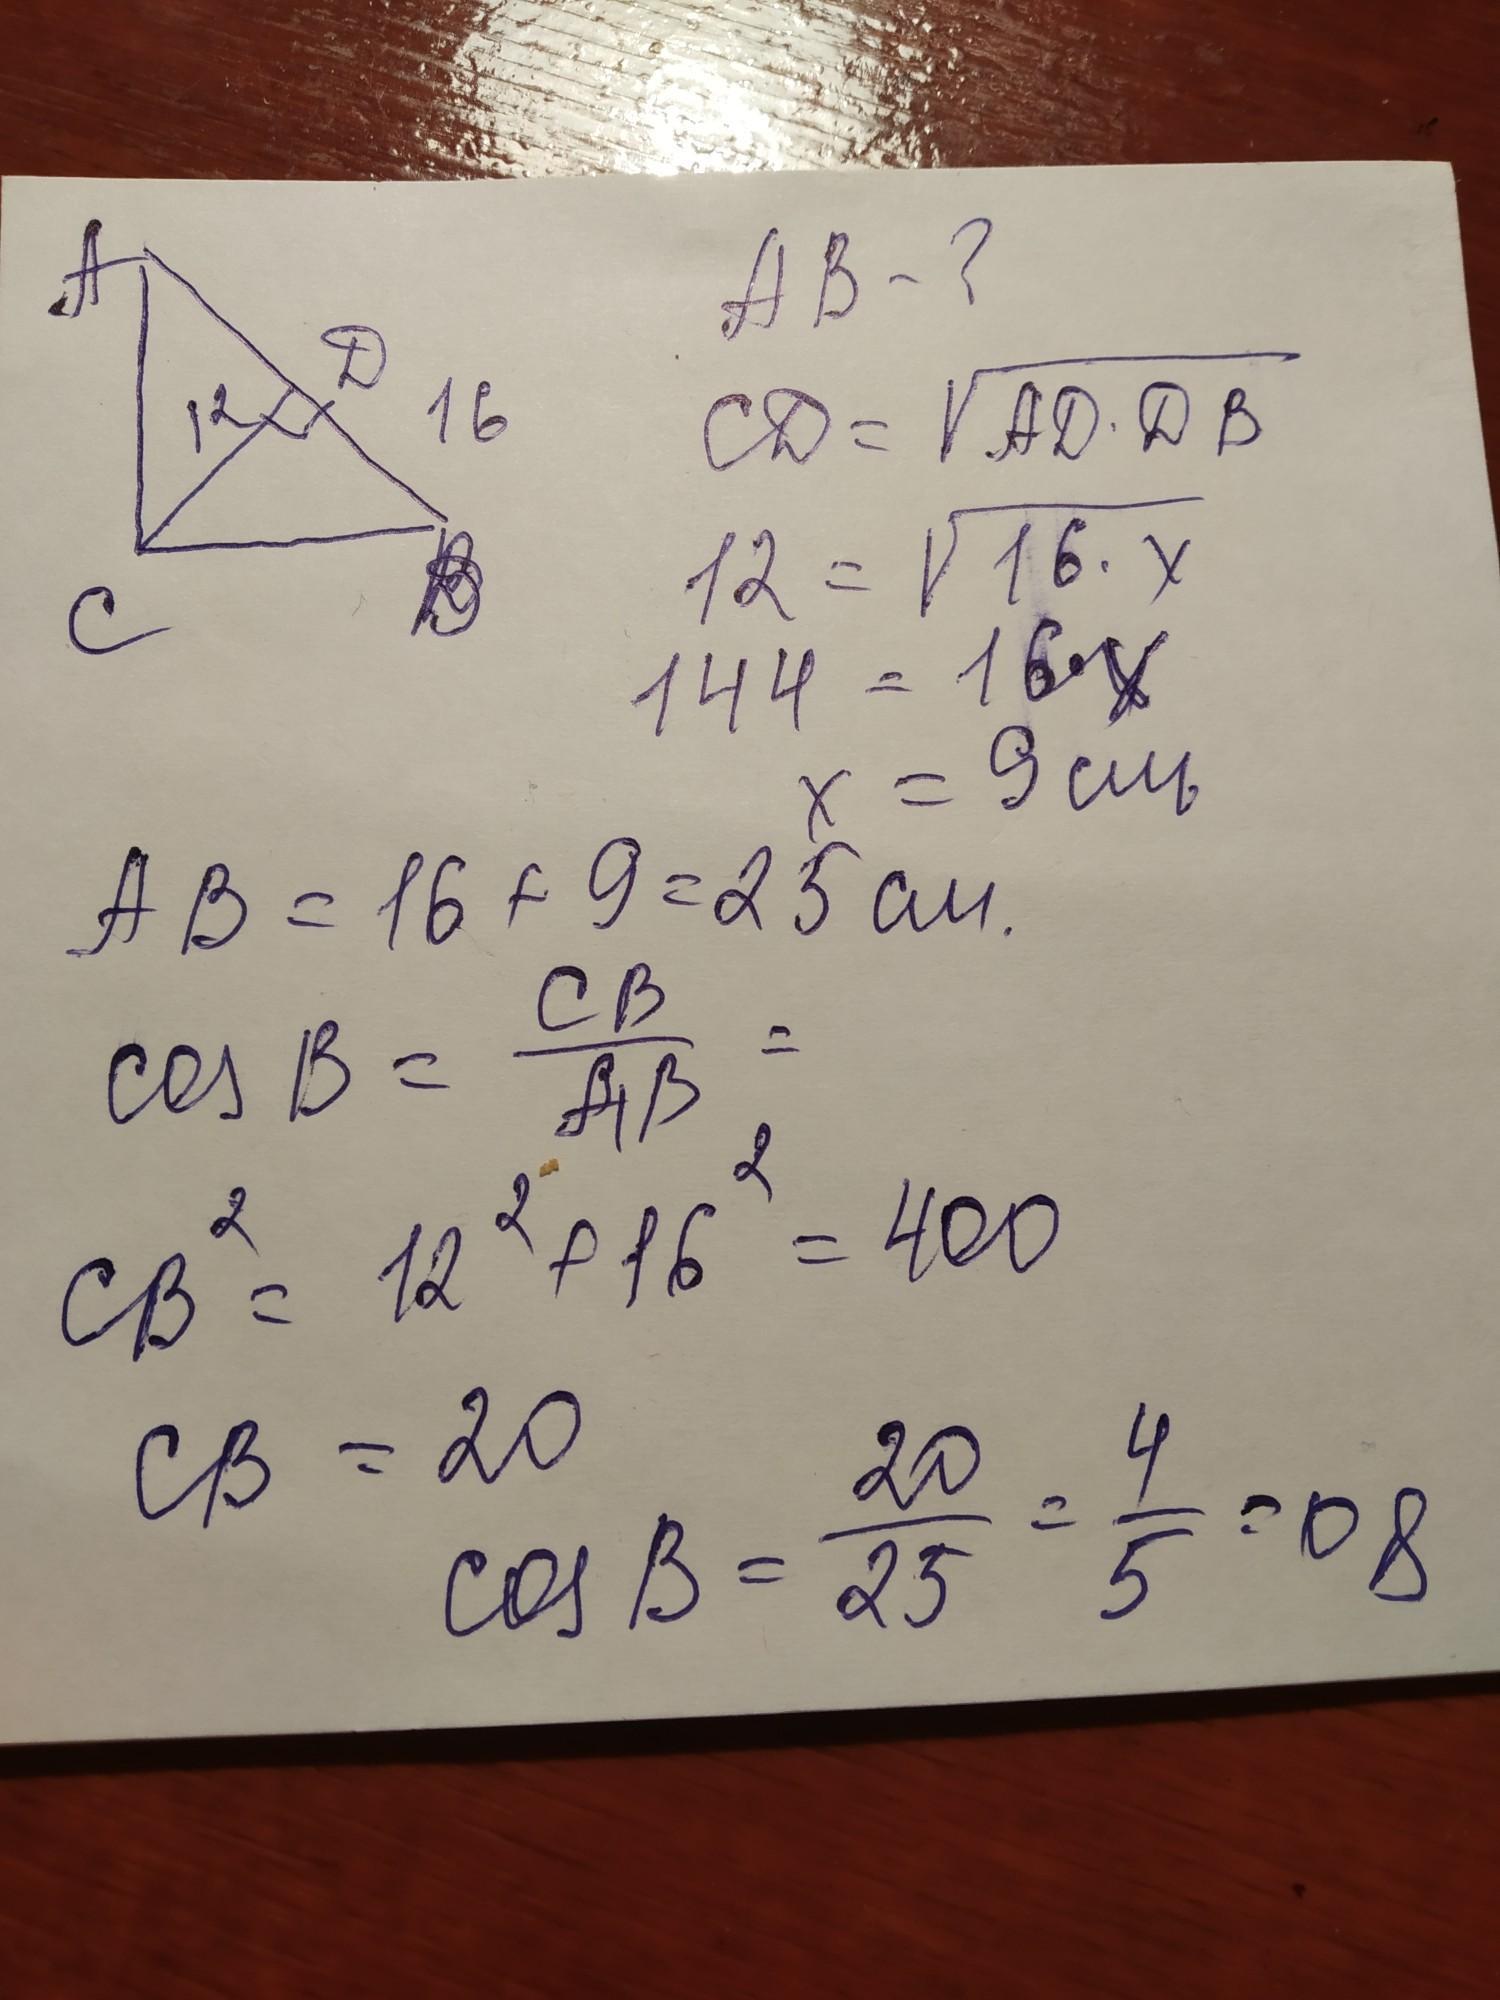 A
D
12
16
C
B
AB - ?
CD = √AD · DB
12 = √16 · x
144 = 16 · x
x = 9 см
AB = 16 + 9 = 25 см.
cos B = CB/AB =
CB² = 12² + 16² = 400
CB = 20
cos B = 20/25 = 4/5 = 0 8